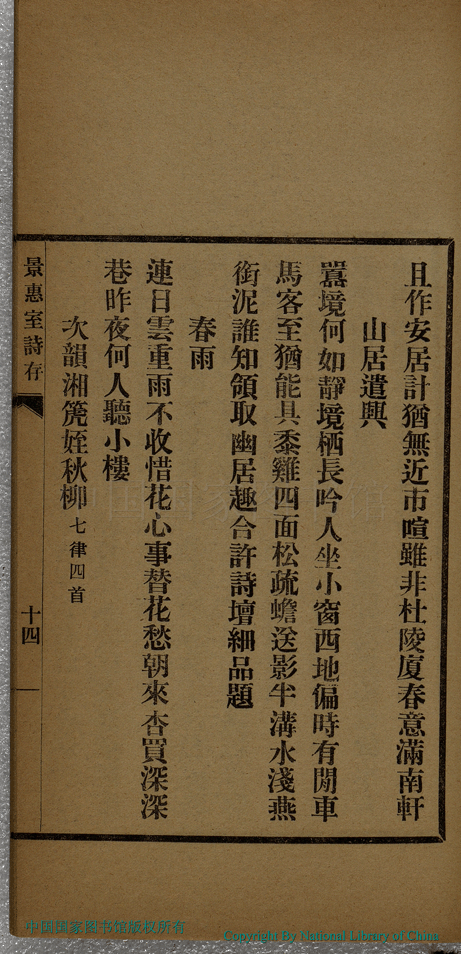 且作安居計猶無近市喧雖非杜陵廈春意滿南軒
山居遣興
囂境何如靜境栖長吟人坐小窗西地偏時有閒車
馬客至猶能具黍雞四面松疏蟾送影半溝水淺燕
銜泥誰知領取幽居趣合許詩壇細品題
春雨
連日雲重雨不收惜花心事替花愁朝來杏買深深
巷昨夜何人聽小樓
次韻湘筦姪秋柳七律四首
景惠室詩存
十四
中国国家图书馆版权所有
Copyright By National Library of China